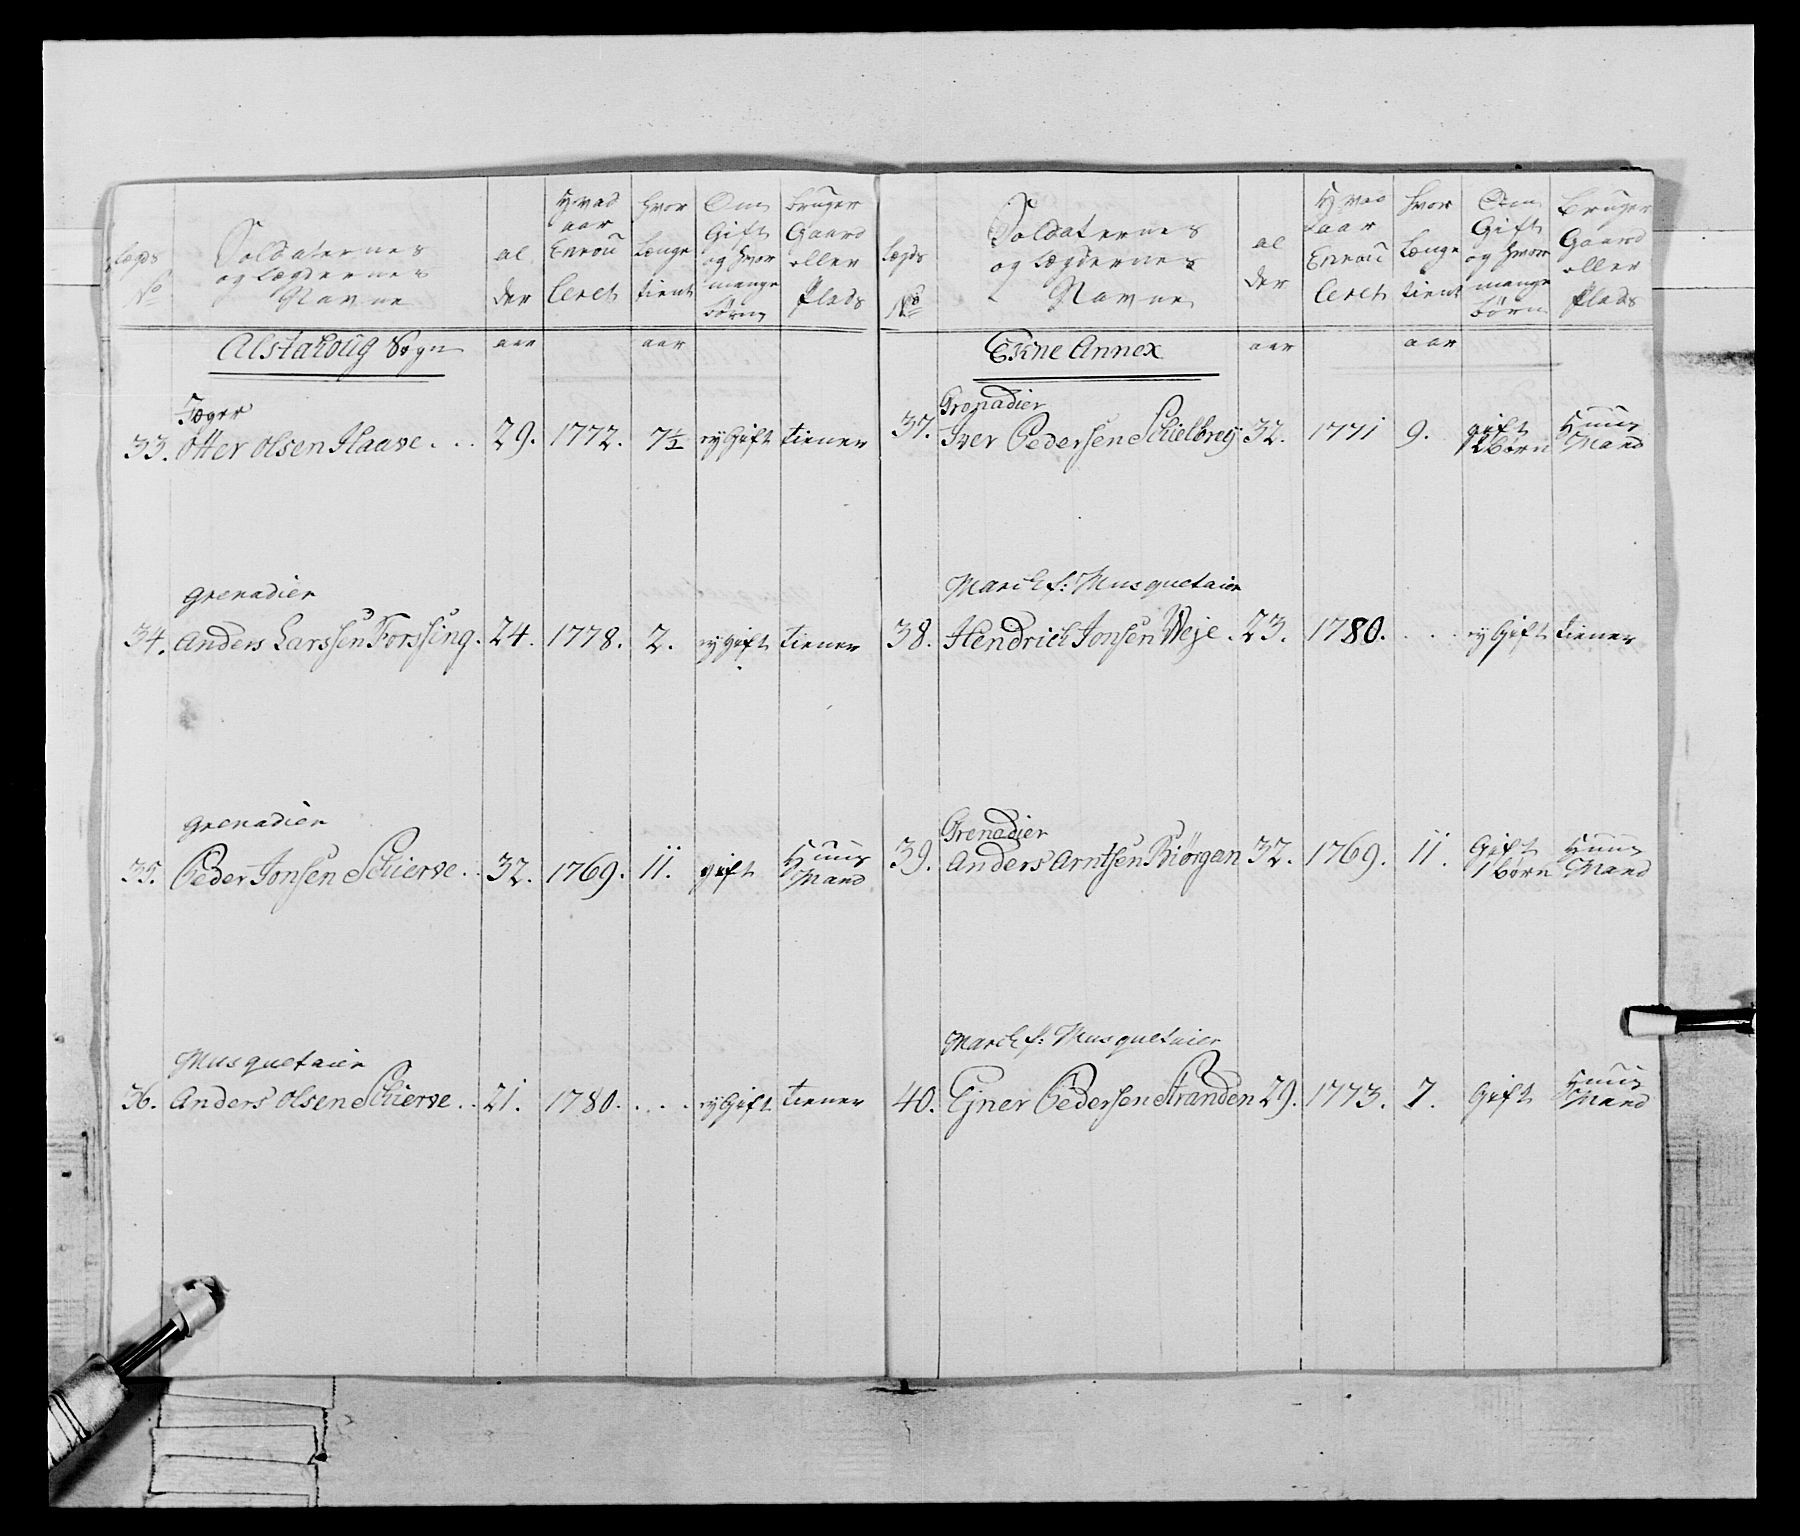 Lægds No | Soldaternes og Lægdernes Navne | al der | Hvad aar Enrou leret | hvor længe tient | Om Gift og hvor mange børn | bruger Gaard eller Plads
Alstahoug Sogn | aar | aar
Jæger
33. Otter Olsen Haave . . . | 29. | 1772. | 7½ | ey Gift | tiener
Grenadier
34. Anders Larssen Forssing. | 24. | 1778. | 2. | ey gift | tiener
Grenadier
35. Peder Jonsen Schierve . . | 32. | 1769. | 11. | gift | Huus Mand
Musquetaier
36. Anders Olsen Schierve . . | 21. | 1780. | . . . . | ey Gift | tiener
Lægds No | Soldaternes og Lægdernes Navne | al der | Hvad aar Enrou leret | hvor længe tient | Om Gift og hvor mange børn | bruger Gaard eller Plads
Ekne Annex | aar | aar
Grenadier
37. Iver Pedersen Schielbrey | 32. | 1771 | 9. | gift 2 børn | Huus Mand
March f: Musquetaier
38. Hendrich Jonsen Weje . | 23. | 1780. | . . . . | ey Gift | tiener
Grenadier
39. Anders Arntsen Biørgan | 32. | 1769. | 11. | Gift 1 børn | Huus Mand
March f: Musquetaier
40. Ejner Pedersen Stranden | 29. | 1773. | 7. | Gift | Huus Mand